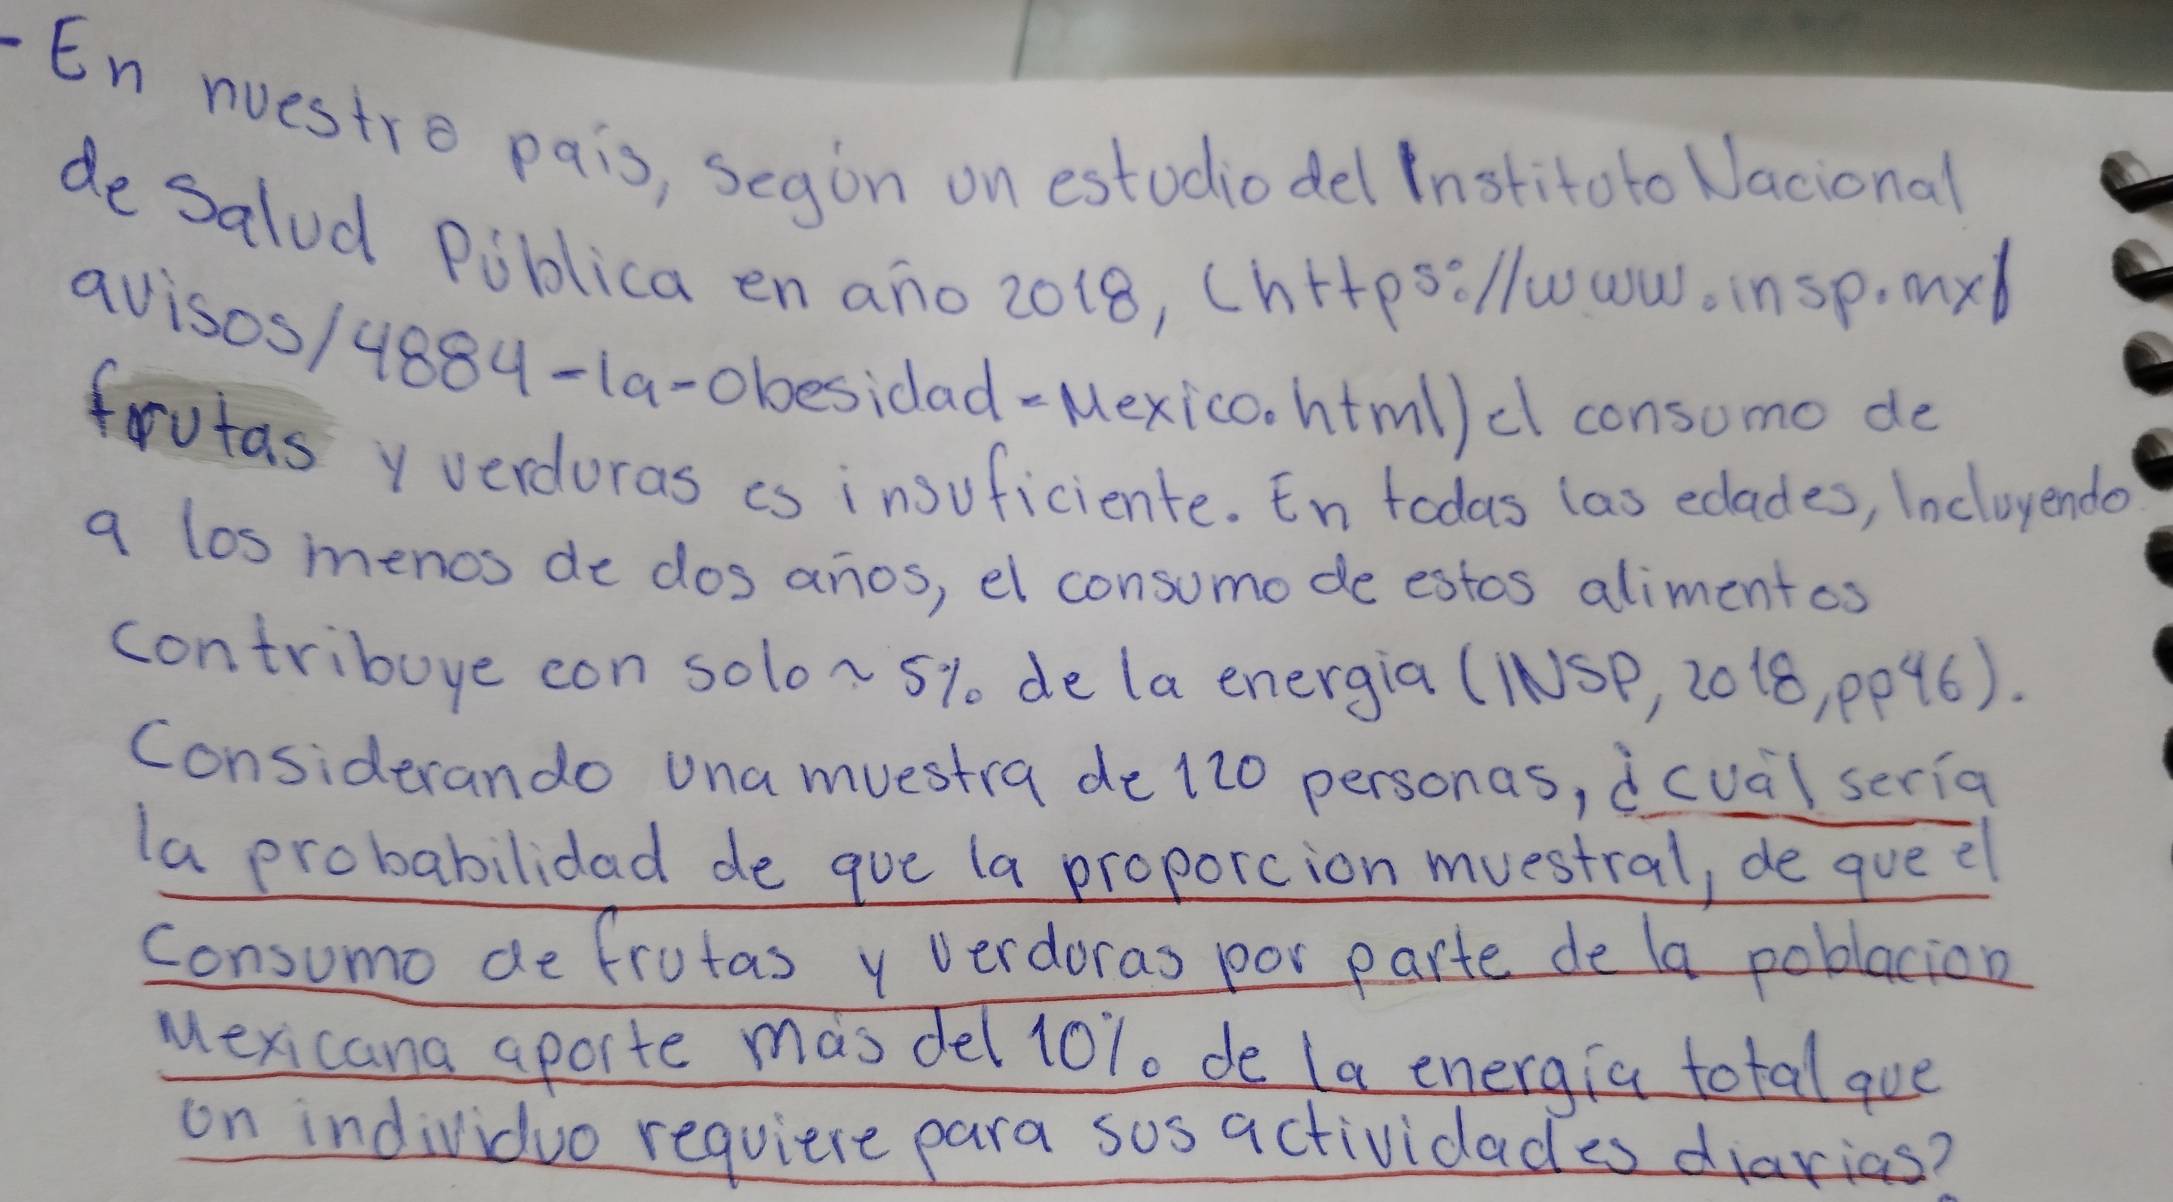 - En nuestro país, según un estudio del Instituto Nacional
de Salud Pública en año 2018, (https://www.insp.mx/
avisos/4884-la-obesidad-Mexico.html) el consumo de
frutas y verduras es insuficiente. En todas las edades, Incluyendo
a los menos de dos años, el consumo de estos alimentos
contribuye con solo ~ 5% de la energia (INSP, 2018, pp46).
Considerando una muestra de 120 personas, ¿cuál sería
la probabilidad de que la proporcion muestral, de que el
Consumo de frutas y verduras por parte de la poblacion
Mexicana aporte más del 10% de la energía total que
un individuo requiere para sus actividades diarias?